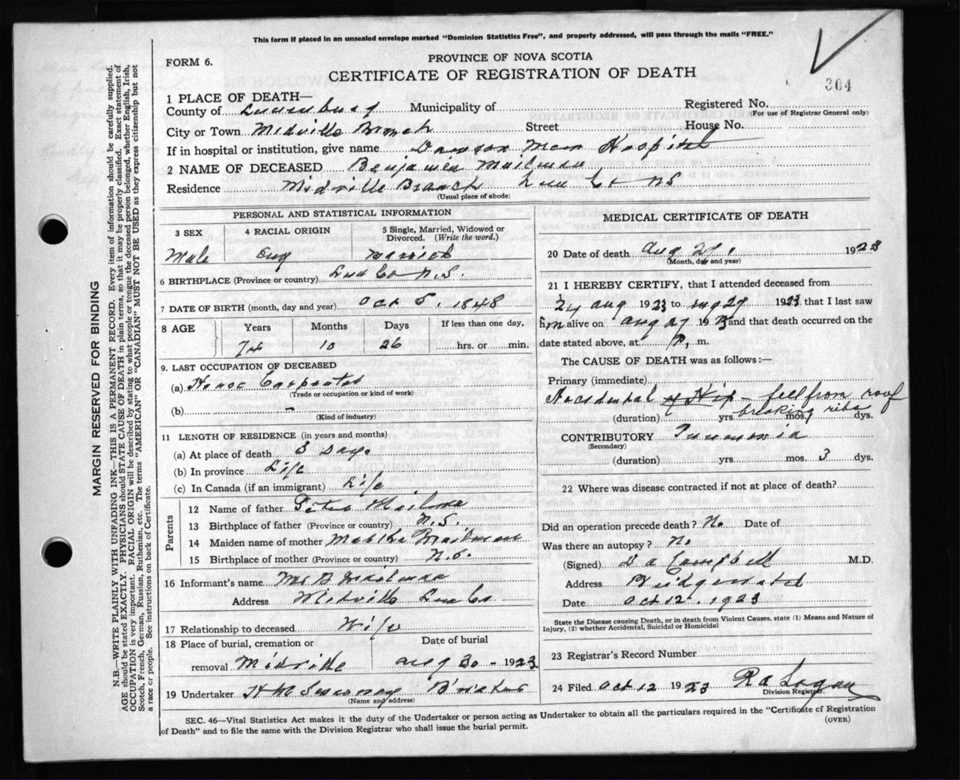 This form if placed in an unsealed envelope marked "Dominion Statistics Free", and properly addressed, will pass through the mails "FREE."
FORM 6.
PROVINCE OF NOVA SCOTIA
CERTIFICATE OF REGISTRATION OF DEATH
304
1 PLACE OF DEATH—
County of Lunenburg Municipality of Registered No.
(For use of Registrar General only)
City or Town Midville Branch Street House No.
If in hospital or institution, give name Dawson Mem Hospital
2 NAME OF DECEASED Benjamin Mailman
Residence Midville Branch Lun Co NS
(Usual place of abode)
PERSONAL AND STATISTICAL INFORMATION
3 SEX 4 RACIAL ORIGIN 5 Single, Married, Widowed or Divorced. (Write the word.)
Male Eng Married
6 BIRTHPLACE (Province or country) Lun Co N.S.
7 DATE OF BIRTH (month, day and year) Oct 8, 1848
8 AGE Years Months Days If less than one day,
74 10 26 hrs. or min.
9. LAST OCCUPATION OF DECEASED
(a) House Carpenter
(Trade or occupation or kind of work)
(b) –
(Kind of industry)
11 LENGTH OF RESIDENCE (in years and months)
(a) At place of death 3 Days
(b) In province Life
(c) In Canada (if an immigrant) Life
Parents
12 Name of father Peter Mailman
13 Birthplace of father (Province or country) N.S.
14 Maiden name of mother Mailman
15 Birthplace of mother (Province or country) N.S.
16 Informant's name Mailman
Address Midville Lun Co
17 Relationship to deceased Wife
18 Place of burial, cremation or removal Midville
Date of burial Aug 30 - 1923
19 Undertaker B'water
(Name and address)
MEDICAL CERTIFICATE OF DEATH
20 Date of death Aug 1923
(Month, day and year)
21 I HEREBY CERTIFY, that I attended deceased from
24 Aug 1923 to Aug 29 1923 that I last saw
him alive on Aug 27 1923 and that death occurred on
date stated above, at P. m.
The CAUSE OF DEATH was as follows:—
Primary (immediate)
Accidental Hip - fell from roof
breaking ribs
(duration) yrs. mos. dys.
CONTRIBUTORY
(Secondary)
(duration) yrs. mos. 3 dys.
22 Where was disease contracted if not at place of death?
Did an operation precede death? No Date of
Was there an autopsy? No
(Signed) D A Campbell M.D.
Address Bridgewater
Date Oct 12, 1923
State the Disease causing Death, or in death from Violent Causes, state (1) Means and Nature of Injury, (2) whether Accidental, Suicidal or Homicidal
23 Registrar's Record Number
24 Filed Oct 12 1923 R A Logan
Division Registrar
SEC. 46—Vital Statistics Act makes it the duty of the Undertaker or person acting as Undertaker to obtain all the particulars required in the "Certificate of Registration
of Death" and to file the same with the Division Registrar who shall issue the burial permit.
(OVER)
MARGIN RESERVED FOR BINDING
N.B.—WRITE PLAINLY WITH UNFADING INK—THIS IS A PERMANENT RECORD. Every item of information should be carefully supplied.
AGE should be stated EXACTLY. PHYSICIANS should STATE CAUSE OF DEATH in plain terms, so that it may be properly classified. Exact statement of
OCCUPATION is very important. RACIAL ORIGIN will be described by stating to what people or tongue the deceased person belonged, whether English, Irish,
Scotch, French, German, Russian, Ruthenian, etc. The terms "AMERICAN" OR "CANADIAN" MUST NOT BE USED as they express citizenship but not
a race or people. See instructions on back of Certificate.